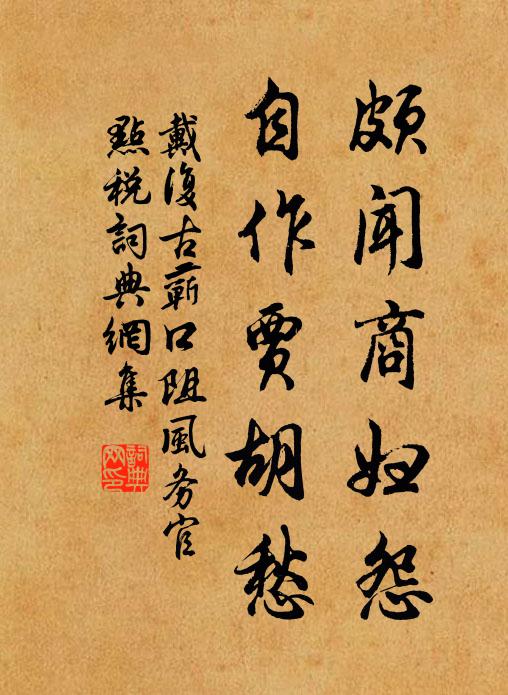 頗聞商婦怨
自作賈胡愁
戴復古蘄口阻風务官
點税詞典網集
詞典
网印